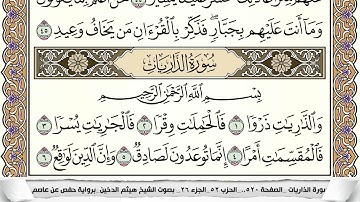 وَمَآ أَنتَ عَلَيْهِم بِجَبَّارٍ ۖ فَذَكِّرْ بِٱلْقُرْءَانِ مَن يَخَافُ وَعِيدِ ٤٥
سُورَةُ الذَّارِيَاتِ
بِسْمِ ٱللَّهِ ٱلرَّحْمَٰنِ ٱلرَّحِيمِ
وَٱلذَّٰرِيَٰتِ ذَرْوًا ١ فَٱلْحَٰمِلَٰتِ وِقْرًا ٢ فَٱلْجَٰرِيَٰتِ يُسْرًا ٣
فَٱلْمُقَسِّمَٰتِ أَمْرًا ٤ إِنَّمَا تُوعَدُونَ لَصَادِقٌ ٥ وَإِنَّ ٱلدِّينَ لَوَٰقِعٌ ٦
سورة الذاريات _ الصفحة ٥٢٠ _ الحزب ٥٢ _ الجزء ٢٦ _ بصوت الشيخ هيثم الدخين _ برواية حفص عن عاصم